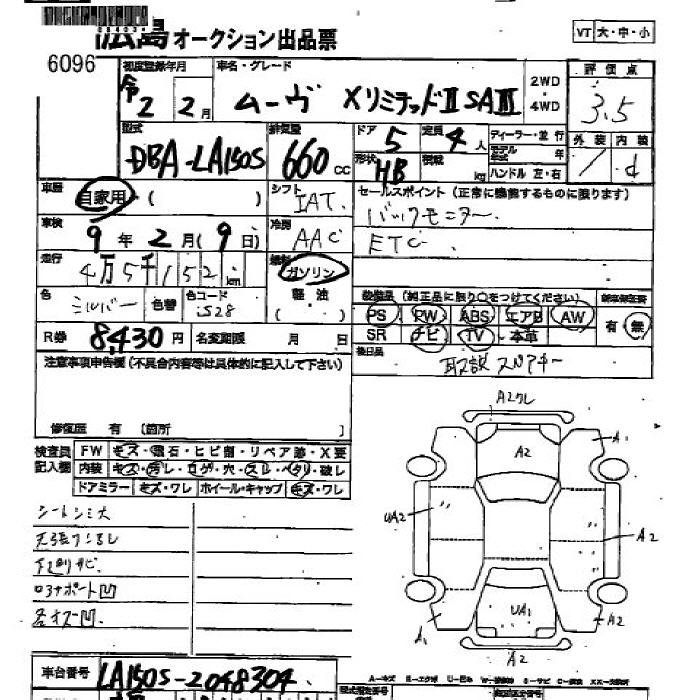 広島オークション出品票
VT 大・中・小
6096
初度登録年月 車名・グレード 2WD・4WD 評価点
令2年 2月 ムーヴ XリミテッドⅡ SAⅢ 3.5
型式 排気量 ドア 5 定員 4人 ディーラー・並行 外装 内装
DBA-LA150S 660cc 形状 HB 積載 kg モデル年式 年 d
ハンドル 左・右
車歴 自家用・( ) シフト IAT. セールスポイント(正常に機能するものに限ります)
車検 9年2月(9日) 冷房 AAC バックモニター.
ETC.
走行 4万5千152km 燃料 ガソリン・軽・油( )
色 シルバー 色替 色コード S28
装備品(純正品に限り○をつけてください) 新車保証書
PS PW ABS エアB AW 有・無
SR ナビ TV 本革
R券 8,430円 名変期限 月 日
後日品 取説 スペアキー
注意事項申告欄(不具合内容等は具体的に記入して下さい)
修復歴 有(箇所 )
検査員記入欄 FW キズ・飛石・ヒビ割・リペア跡・X要
内装 キズ・汚レ・コゲ・穴・スレ・ヘタリ・破レ
ドアミラー キズ・ワレ ホイール・キャップ キズ・ワレ
シートシミ大
下廻りサビ
A2ワレ
A1
A2
UA2
A2
UA1
A1
A2
A2
車台番号 LA150S-2048304.